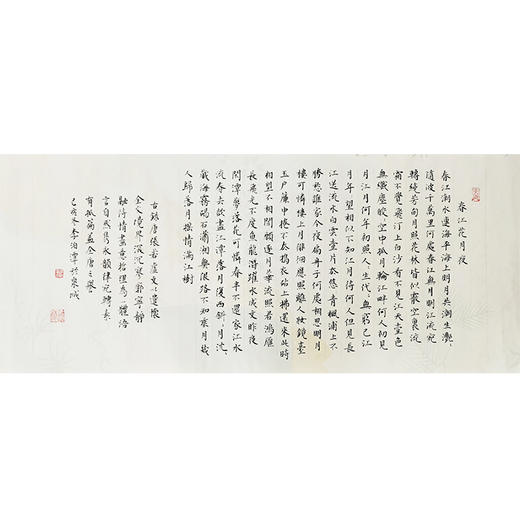 春江花月夜
春江潮水連海平海上明月共潮生灧灧
隨波千萬里何處春江無月明江流宛
轉繞芳甸月照花林皆似霰空裏流
霜不覺飛汀上白沙看不見江天一色
無纖塵皎皎空中孤月輪江畔何人初見
月江月何年初照人人生代代無窮已江
月年年望相似不知江月待何人但見長
江送流水白雲一片去悠悠青楓浦上不
勝愁誰家今夜扁舟子何處相思明月
樓可憐樓上月徘徊應照離人妝鏡臺
玉戶簾中捲不去搗衣砧上拂還來此時
相望不相聞願逐月華流照君鴻雁
長飛光不度魚龍潛躍水成文昨夜
閒潭夢落花可憐春半不還家江水
流春去欲盡江潭落月復西斜斜月沈沈
藏海霧碣石瀟湘無限路不知乘月幾
人歸落月搖情滿江樹
右錄唐張若虛文以遣懷
全文境界深沉寥廓寧靜
融詩情畫意哲理為一體語
言自然雋永韻律宛轉素
有孤篇蓋全唐之譽
己亥冬李伯潭於泉城